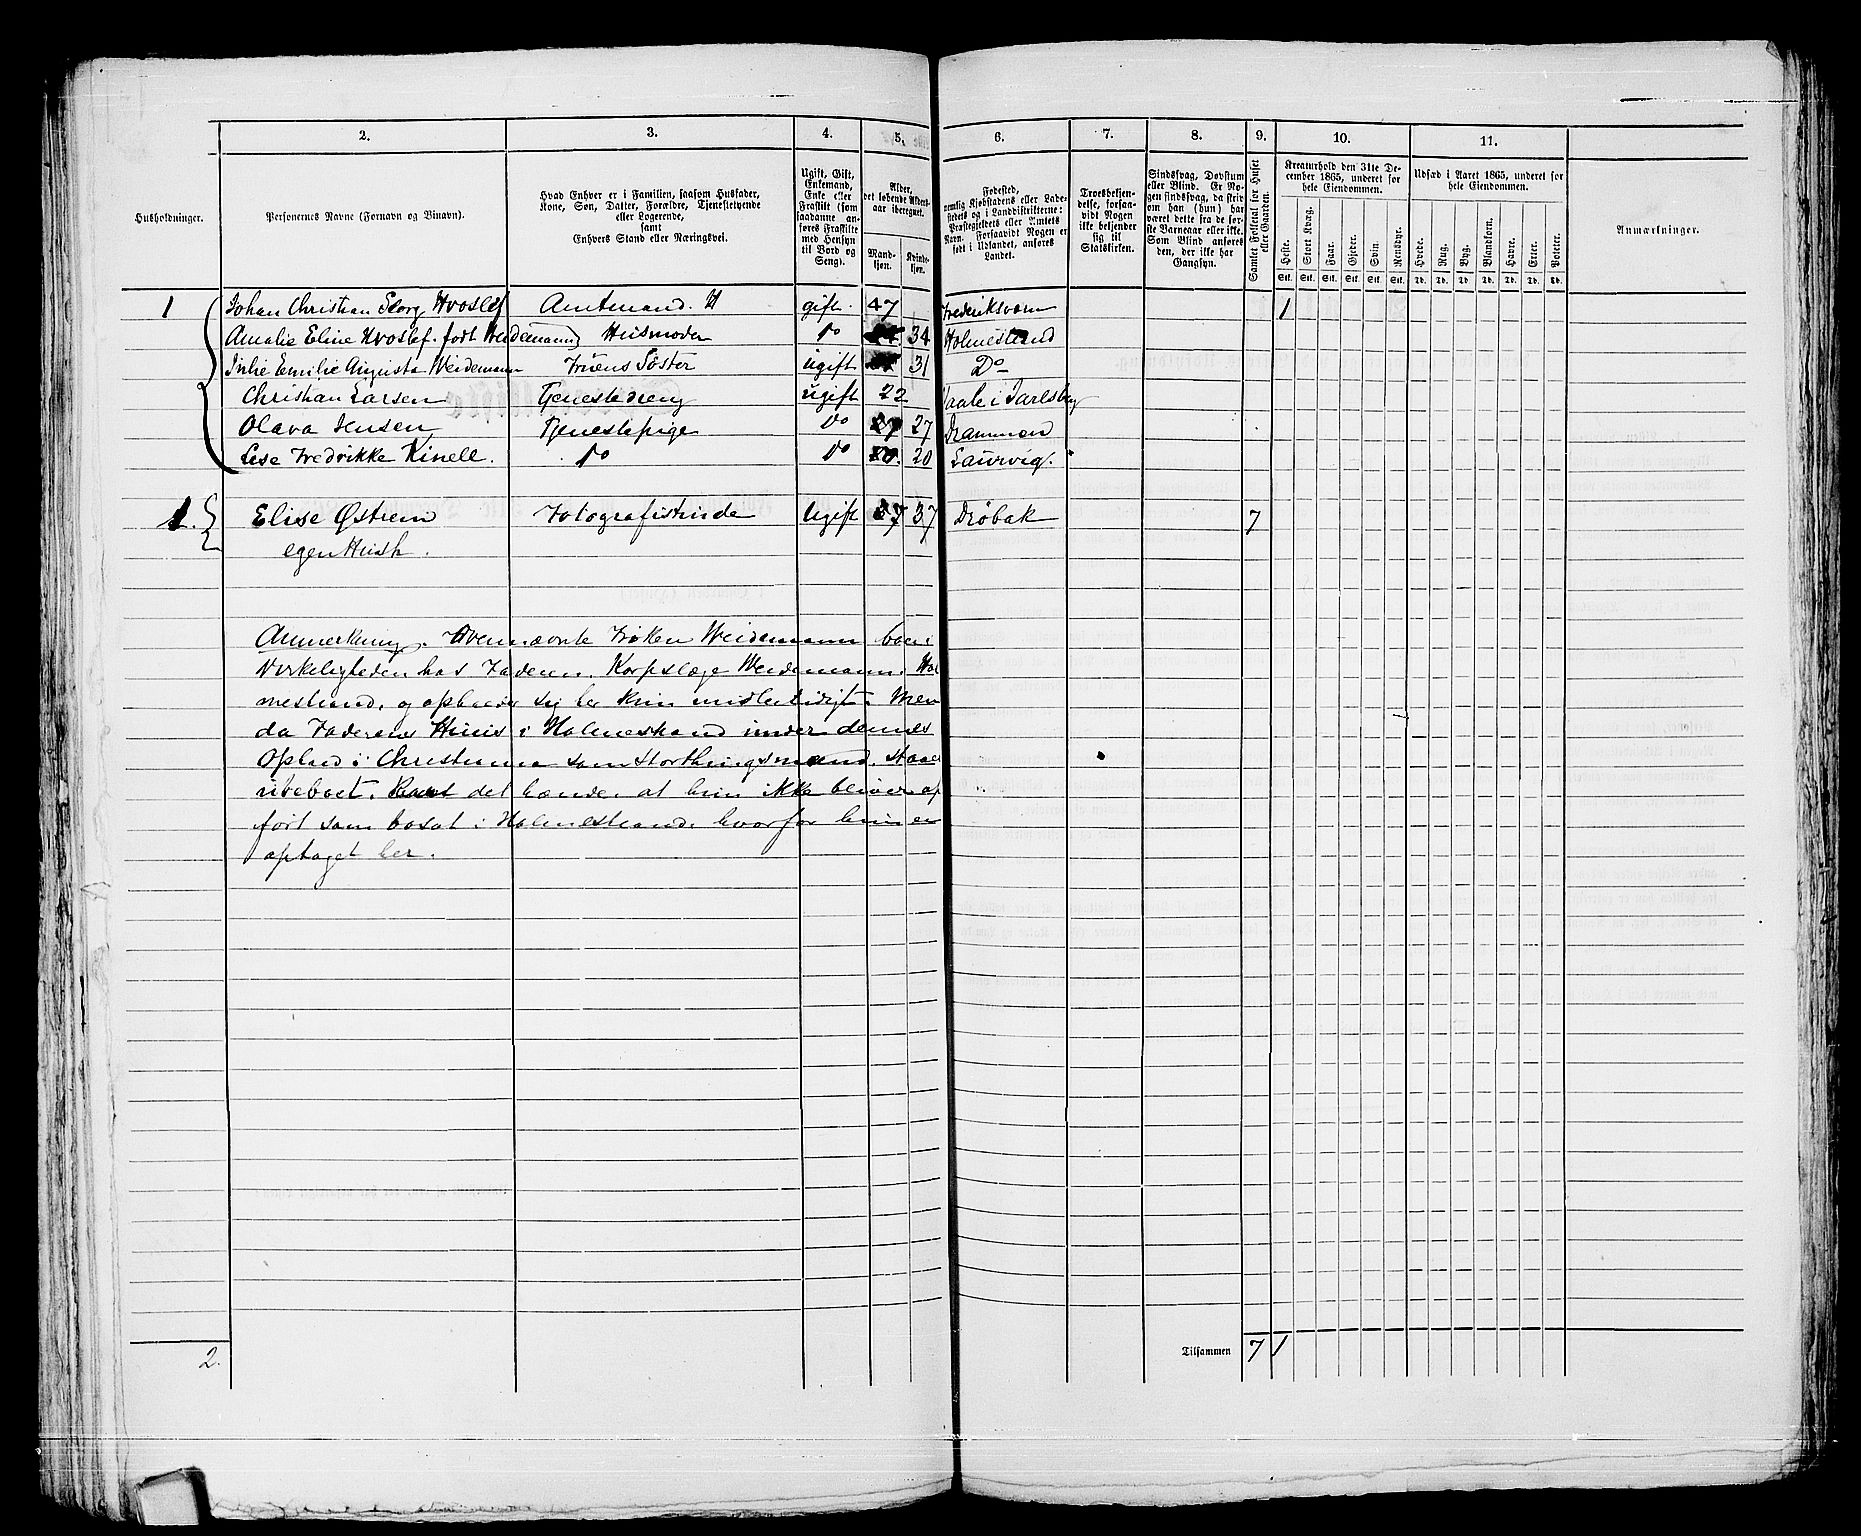 2. 3. 4. 5. 6. 7. 8. 9. 10. 11.
Husholdninger.
Personernes Navne (Fornavn og Vinavn).
Hvad Enhver er i Familien, saasom Husfader,
Kone, Søn, Datter, Forældre, Tjenestetyende
eller Logerende,
samt
Enhvers Stand eller Næringsvei.
Ugift, Gift,
Enkemand,
Enke eller
Fraskilt (som
saadanne an-
føres Fraskilte
med Hensyn
til Bord og
Seng).
Alder,
det løbende Alders-
aar iberegnet.
Mand-
kjøn.
Kvinde-
kjøn.
Fødested,
nemlig Kjøbstadens eller Lade-
stedets og i Landdistrikterne:
Præstegjeldets eller Amtets
Navn. Forsaavidt Nogen er
født i Udlandet, anføres
Landet.
Troesbekjen-
delse, forsaa-
vidt Nogen
ikke bekjender
sig til
Statskirken.
Sindssvag, Døvstum
eller Blind. Er No-
gen sindssvag, da skriv
om han (hun) har
været dette fra de for-
ste Barneaar eller ikke.
Som Blind anføres
den, der ikke har
Gangsyn.
Samlet Folketal for Huset
eller Gaarden.
Kreaturhold den 31te De-
cember 1865, underet for
hele Eiendommen.
Heste. Stort Kvæg. Faar. Gjeder. Svin. Rensdyr.
Stk. Stk. Stk. Stk. Stk. Stk.
Udsæd i Aaret 1865, underet for
hele Eiendommen.
Hvede. Rug. Byg. Blandkorn. Havre. Erter. Poteter.
Td. Td. Td. Td. Td. Td. Td.
Anmærkninger.
1 Johan Christian Georg Hvoslef Amtmand. H gift. 47 Fredriksværn 1
Amalie Eline Hvoslef. født Weidemann Husmoder Do 34 Holmestrand
Julie Emilie Augusta Weidemann Fruens Søster ugift 31 Do
Christian Larsen Tjenestedreng ugift 22 Vaale i Jarlsberg
Olava Jensen Tjenestepige Do 27 27 Drammen
Lise Fredrikke Kinell. Do Do 20 20 Laurvig.
1. Elise Østrem Fotografistinde Ugift 37 37 Drøbak 7
egen Hush.
Anmerkning. Ovennævnte Frøken Weidemann boer i
Virkeligheden hos Faderen, Korpslæge Weidemann. Hol
mestrand, og opholder sig her kun midlertidigt. Men
da Faderens Huus i Holmestrand under dennes
Ophold i Christiania som Storthingsmand, staaer
ubeboet, det hænde, at hun ikke bliver op
ført som bosat i Holmestrand, hvorfor hun er
optaget her.
2. Tilsammen 7 1